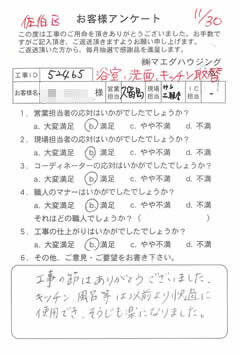 佐伯区
お客様アンケート
11/30
この度は工事のご用命を頂きありがとうございました。お手数で
すがご記入頂き、ご返送頂きますようお願い申し上げます。
ご返送頂いた方から、毎月抽選で感謝品を進呈します。
㈱マエダハウジング
工事ID 52465 浴室、洗面、キッチン取替
様 営業担当 現場担当 IC担当 -
1．営業担当者の応対はいかがでしたでしょうか？
a. 大変満足 b. 満足 c. やや不満 d. 不満
2．現場担当者の応対はいかがでしたでしょうか？
a. 大変満足 b. 満足 c. やや不満 d. 不満
3．コーディネーターの応対はいかがでしたでしょうか？
a. 大変満足 b. 満足 c. やや不満 d. 不満
4．職人のマナーはいかがでしたでしょうか？
a. 大変満足 b. 満足 c. やや不満 d. 不満
それはどの職人でしょうか？（ ）
5．工事の仕上がりはいかがでしたでしょうか？
a. 大変満足 b. 満足 c. やや不満 d. 不満
6．その他、ご意見・ご要望をお書き下さい。
工事の節はありがとうございました。
キッチン、風呂等は以前より快適に
使用でき、そうじも楽になりました。